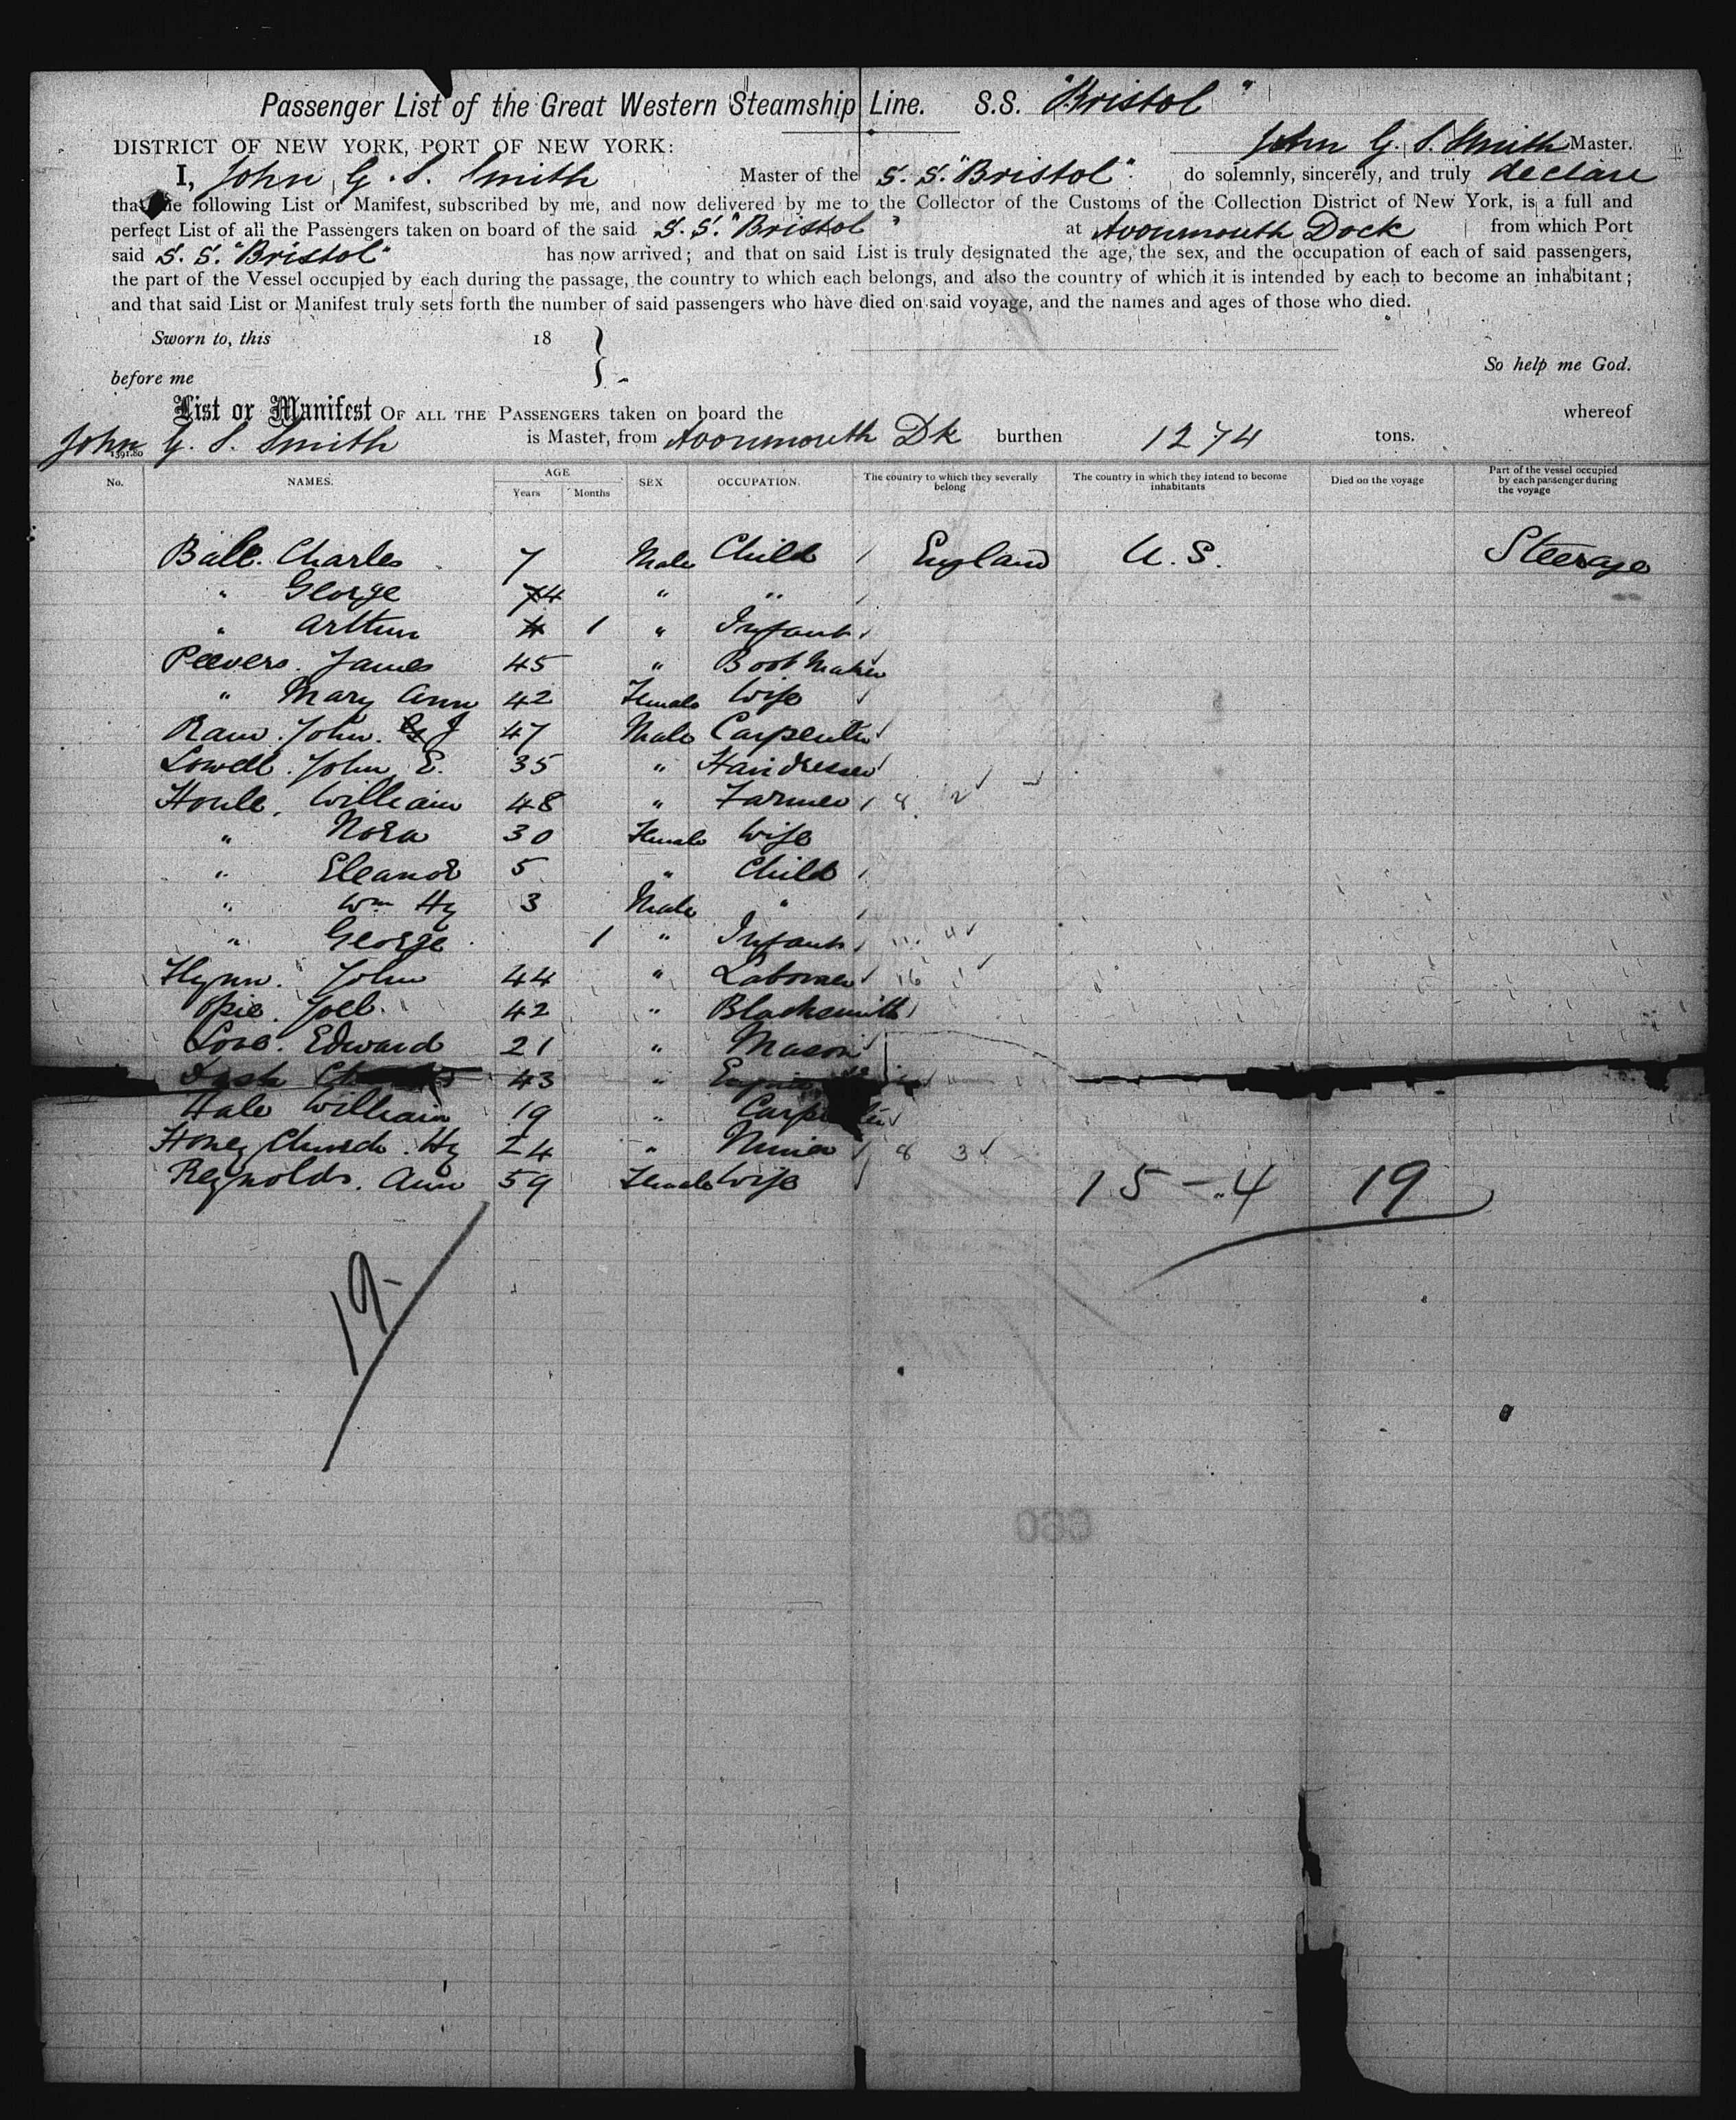 Passenger List of the Great Western Steamship Line. S.S. "Bristol"
DISTRICT OF NEW YORK, PORT OF NEW YORK: John G. S. Smith Master.
I, John G. S. Smith Master of the S. S. "Bristol" do solemnly, sincerely, and truly declare
that the following List or Manifest, subscribed by me, and now delivered by me to the Collector of the Customs of the Collection District of New York, is a full and
perfect List of all the Passengers taken on board of the said S. S. "Bristol" at Avonmouth Dock from which Port
said S. S. "Bristol" has now arrived; and that on said List is truly designated the age, the sex, and the occupation of each of said passengers,
the part of the Vessel occupied by each during the passage, the country to which each belongs, and also the country of which it is intended by each to become an inhabitant;
and that said List or Manifest truly sets forth the number of said passengers who have died on said voyage, and the names and ages of those who died.
Sworn to, this 18
So help me God.
before me
List or Manifest OF ALL THE PASSENGERS taken on board the whereof
John G. S. Smith is Master, from Avonmouth Dk burthen 1274 tons.
No. NAMES. AGE Years Months SEX OCCUPATION. The country to which they severally belong The country in which they intend to become inhabitants Died on the voyage Part of the vessel occupied by each passenger during the voyage
Ball. Charles 7 Male Child England U. S. Steerage
" George 4 " "
" Arthur 1 " Infant
Peevers. James 45 " Boot Maker
" Mary Ann 42 Female Wife
Raw. John. J 47 Male Carpenter
Lowell. John E. 35 " Hairdresser
Houle. William 48 " Farmer 8 12
" Nora 30 Female Wife
" Eleanor 5 " Child
" Wm Hy 3 Male "
" George 1 " Infant 11. 4
Flynn. John 44 " Labourer 16 1
Opie. Joel. 42 " Blacksmith
Love. Edward 21 " Mason
43 "
Hale William 19 " Carpenter
Honey Church. Hy 24 " Miner 8 3
Reynolds. Ann 59 Female Wife
15 - 4 19
19